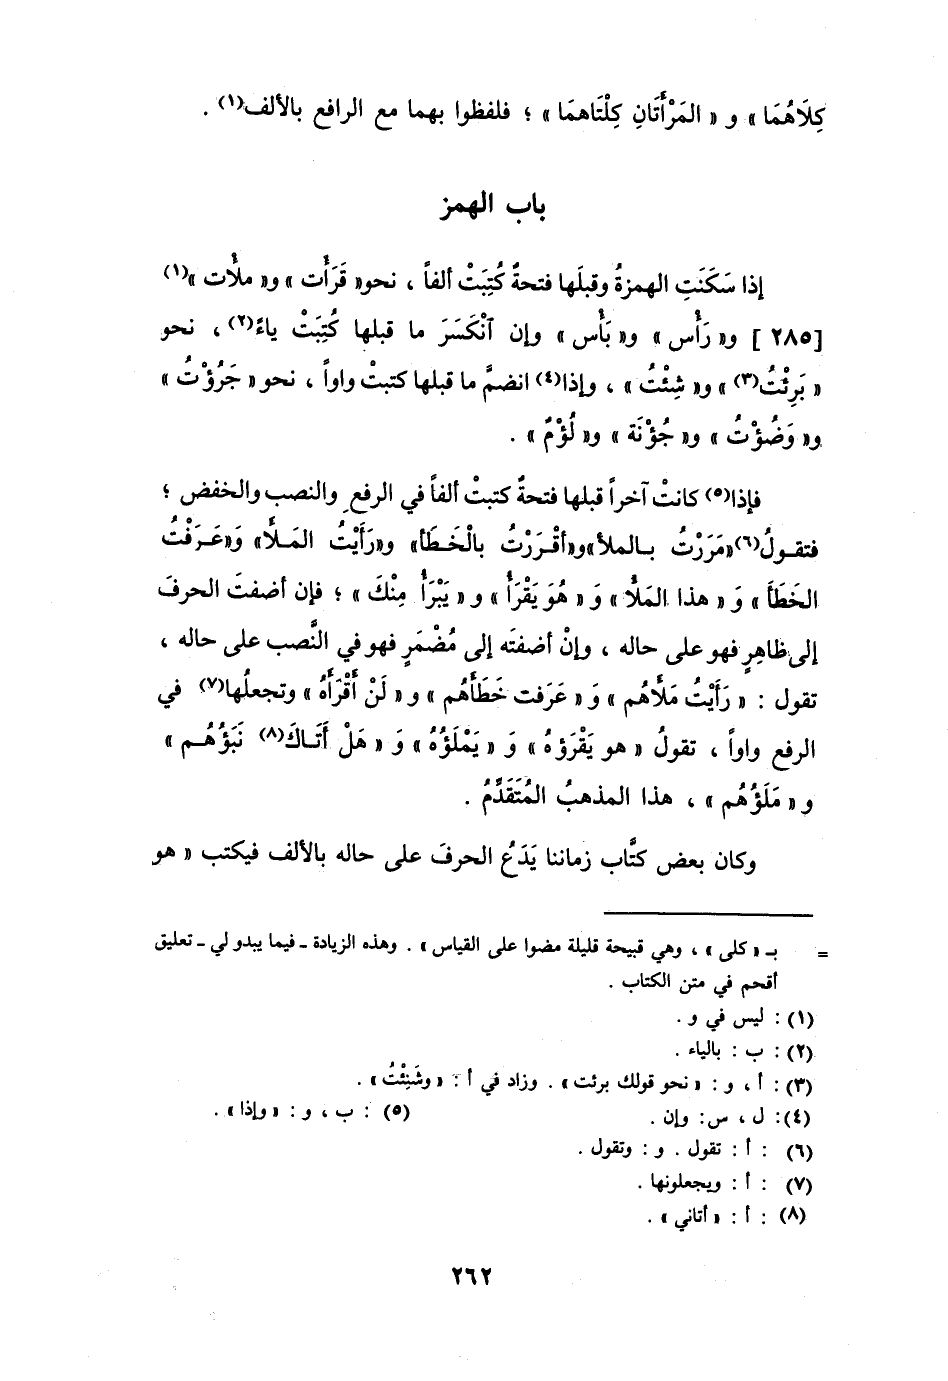 كِلَاهُمَا » و « المَرْأَتَانِ كِلْتَاهمَا » ؛ فلفظوا بهما مع الرافع بالألف(١) .
باب الهمز
إذا سَكَنَتِ الهمزةُ وقبلَها فتحةٌ كُتِبَتْ ألفاً ، نحو« قَرَأْت » و« ملأْت »(١)
[٢٨٥] و« رَأْس » و« بَأْس » وإن ٱنْكَسَرَ ما قبلها كُتِبَتْ ياءً(٢) ، نحو
« بَرِئْتُ(٣) » و« شِئْتُ » ، وإذا(٤) انضمَّ ما قبلها كتبتْ واواً ، نحو « جَرُؤْتُ »
و« وَضُؤْتُ » و« جُؤْنَة » و« لُؤْمٌ » .
فإذا(٥) كانتْ آخراً قبلها فتحةٌ كتبتْ ألفاً في الرفع والنصب والخفض ؛
فتقولُ(٦)«مَرَرْتُ بالملأ»و«أقْرَرْتُ بالْخَطَأ» و«رَأَيْتُ المَلأَ» وَ«عَرَفْتُ
الخَطَأَ » وَ « هذا المَلأُ » وَ « هُوَ يَقْرَأُ » و « يَبْرَأُ مِنْكَ » ؛ فإن أضفتَ الحرفَ
إلى ظاهِرٍ فهو على حاله ، وإنْ أضفتَه إلى مُضْمَرٍ فهو في النَّصب على حاله ،
تقول : « رَأَيْتُ مَلأَهُم » وَ « عَرَفت خَطَأَهُم » و « لَنْ أَقْرَأَهُ » وتجعلُها(٧) في
الرفع واواً ، تقولُ « هو يَقْرَؤهُ » وَ « يَمْلَؤُهُ » وَ « هَلْ أَتَاكَ(٨) نَبَؤُهُم »
و « مَلَؤُهُم » ، هذا المذهبُ المُتَقَدِّمُ .
وكان بعض كتَّاب زماننا يَدَعُ الحرفَ على حاله بالألف فيكتب « هو
= بـ « كلى » ، وهي قبيحة قليلة مضوا على القياس » . وهذه الزيادة ـ فيما يبدو لي ـ تعليق
أقحم في متن الكتاب .
(١) : ليس في و .
(٢) : ب : بالياء .
(٣) : أ ، و : « نحو قولك برئت » . وزاد في أ : « وشَنِئْتُ » .
(٤) : ل ، س : وإن . (٥) : ب ، و : « وإذا » .
(٦) : أ : تقول . و : وتقول .
(٧) : أ : ويجعلونها .
(٨) : أ : « أتاني » .
٢٦٢